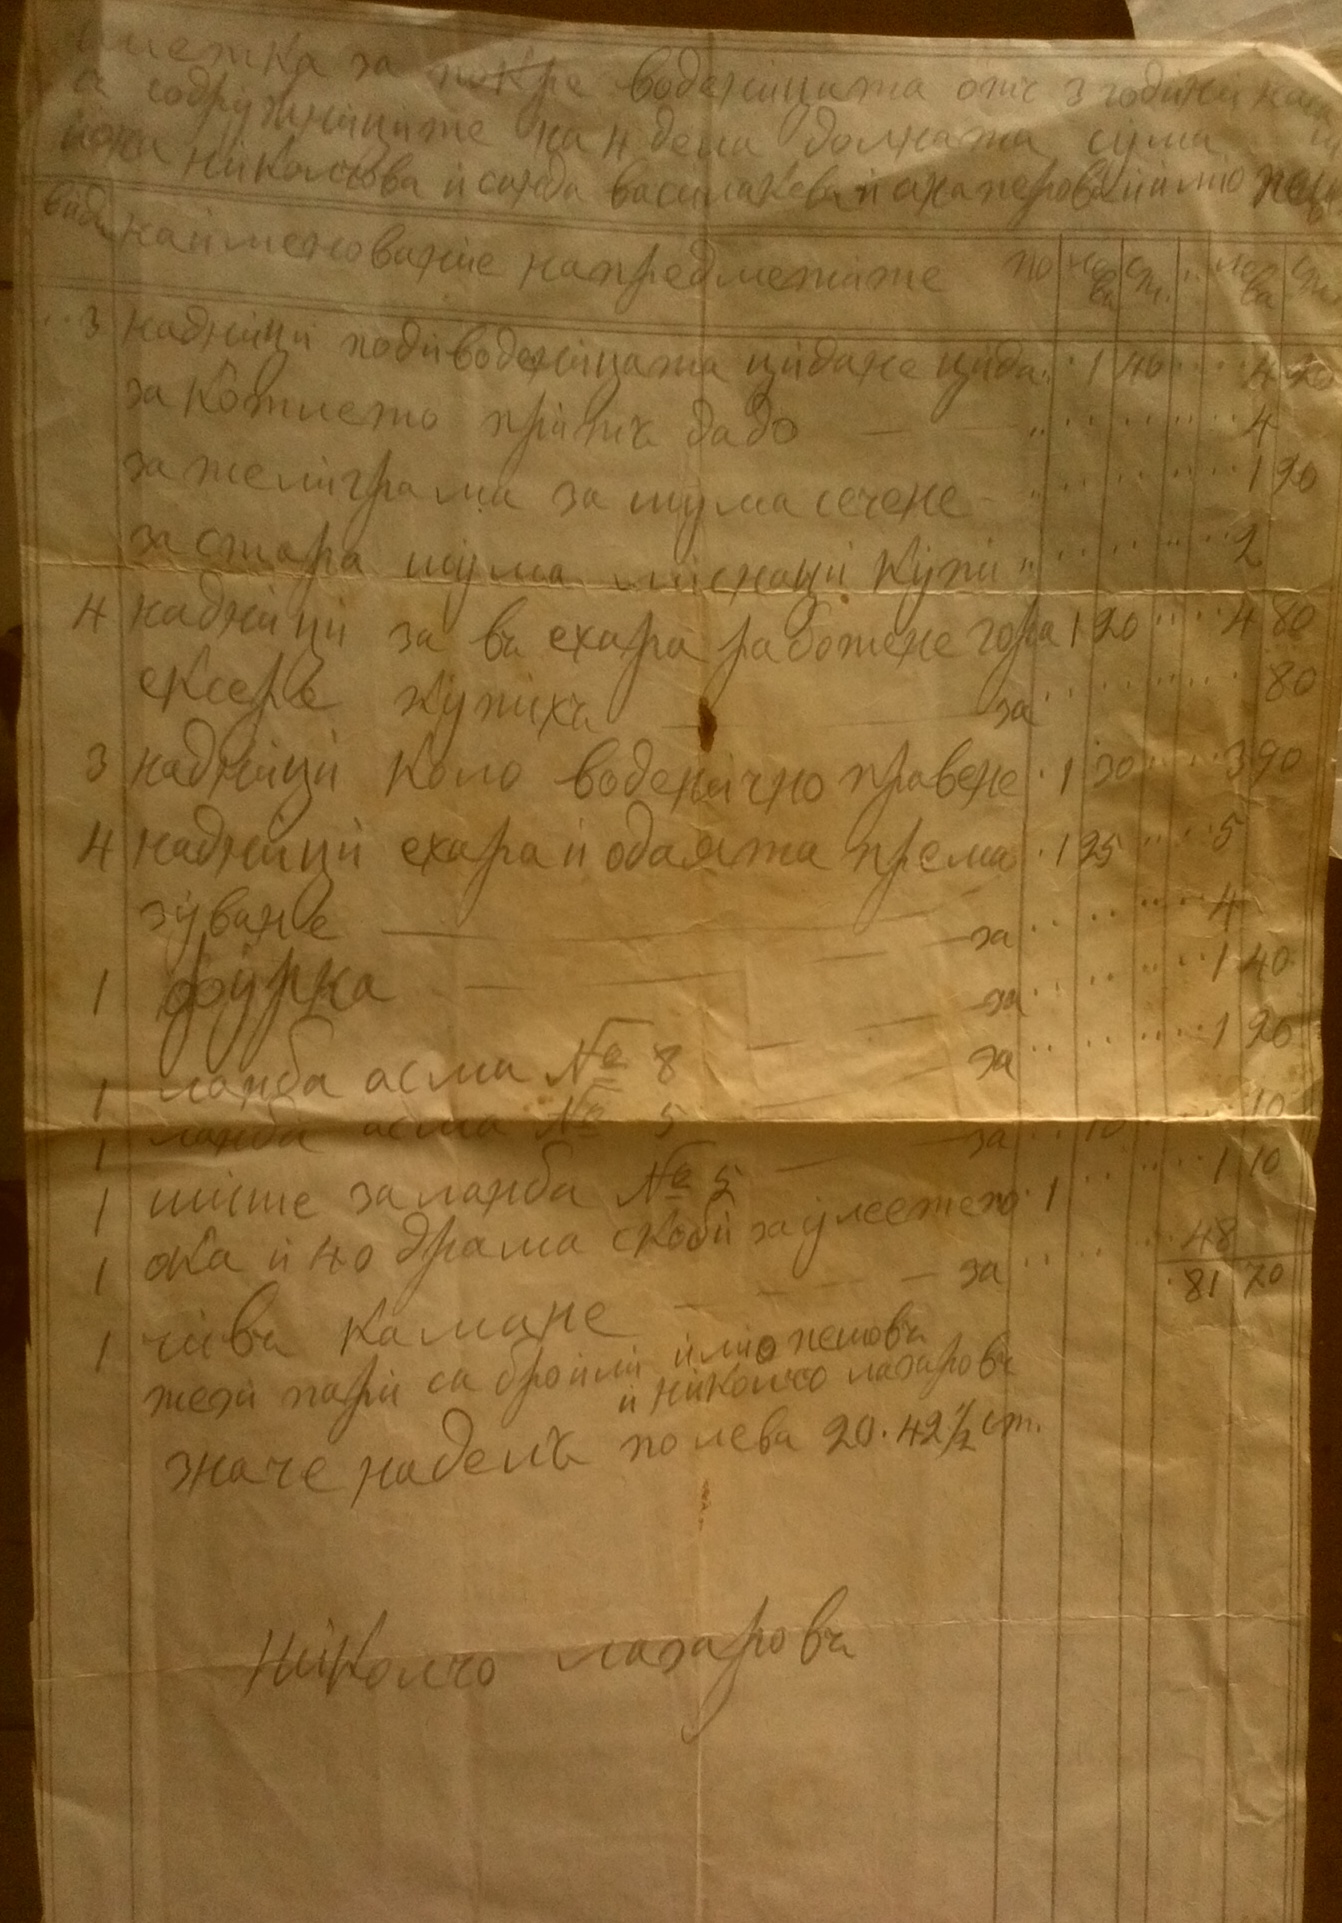 сметка за воденицата отъ 3 години
са содружниците на 4 дела долната сума
йона николчова и санда василакева и имшо
види наименование на предметите по лева ст. .. лева ст.
3 надници поди воденицата цидане цида 1 40 4 20
за котлето притъ дадо — — 4
за телиграма за шума сечене — 1 20
за стара шума миснаци купи 2
4 надници за въ ехара работене гора 1 20 4 80
ексере купихъ — за 80
3 надници коло воденично правене 1 30 3 90
4 надници ехара и одаята према 1 25 5
зуване — за 4
1 фурка — за 1 40
1 ланба асма № 8 — за 1 20
1 ланба асма № 5 — за 10 10
1 шише за ланба № 5 1 1 10
1 ока и 40 драма скоби за улеетето 48
1 чивъ камане — за 81 70
тези пари са броили имшо пешовъ
и николчо лазаровъ
значе на делъ по лева 20.42½ ст.
Николчо лазаровъ